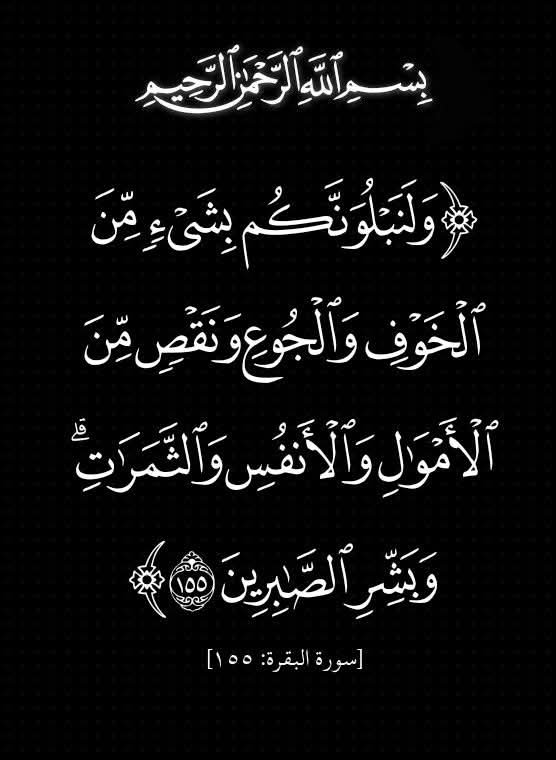 بِسْمِ ٱللَّهِ ٱلرَّحْمَٰنِ ٱلرَّحِيمِ
﴿وَلَنَبْلُوَنَّكُم بِشَىْءٍۢ مِّنَ
ٱلْخَوْفِ وَٱلْجُوعِ وَنَقْصٍۢ مِّنَ
ٱلْأَمْوَٰلِ وَٱلْأَنفُسِ وَٱلثَّمَرَٰتِ ۗ
وَبَشِّرِ ٱلصَّٰبِرِينَ ١٥٥﴾
[سورة البقرة: ١٥٥]